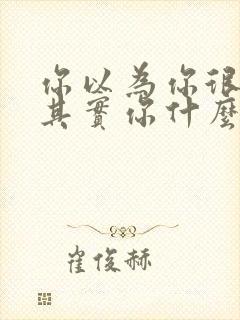 你以為你很
其實你什麼
崔俊赫